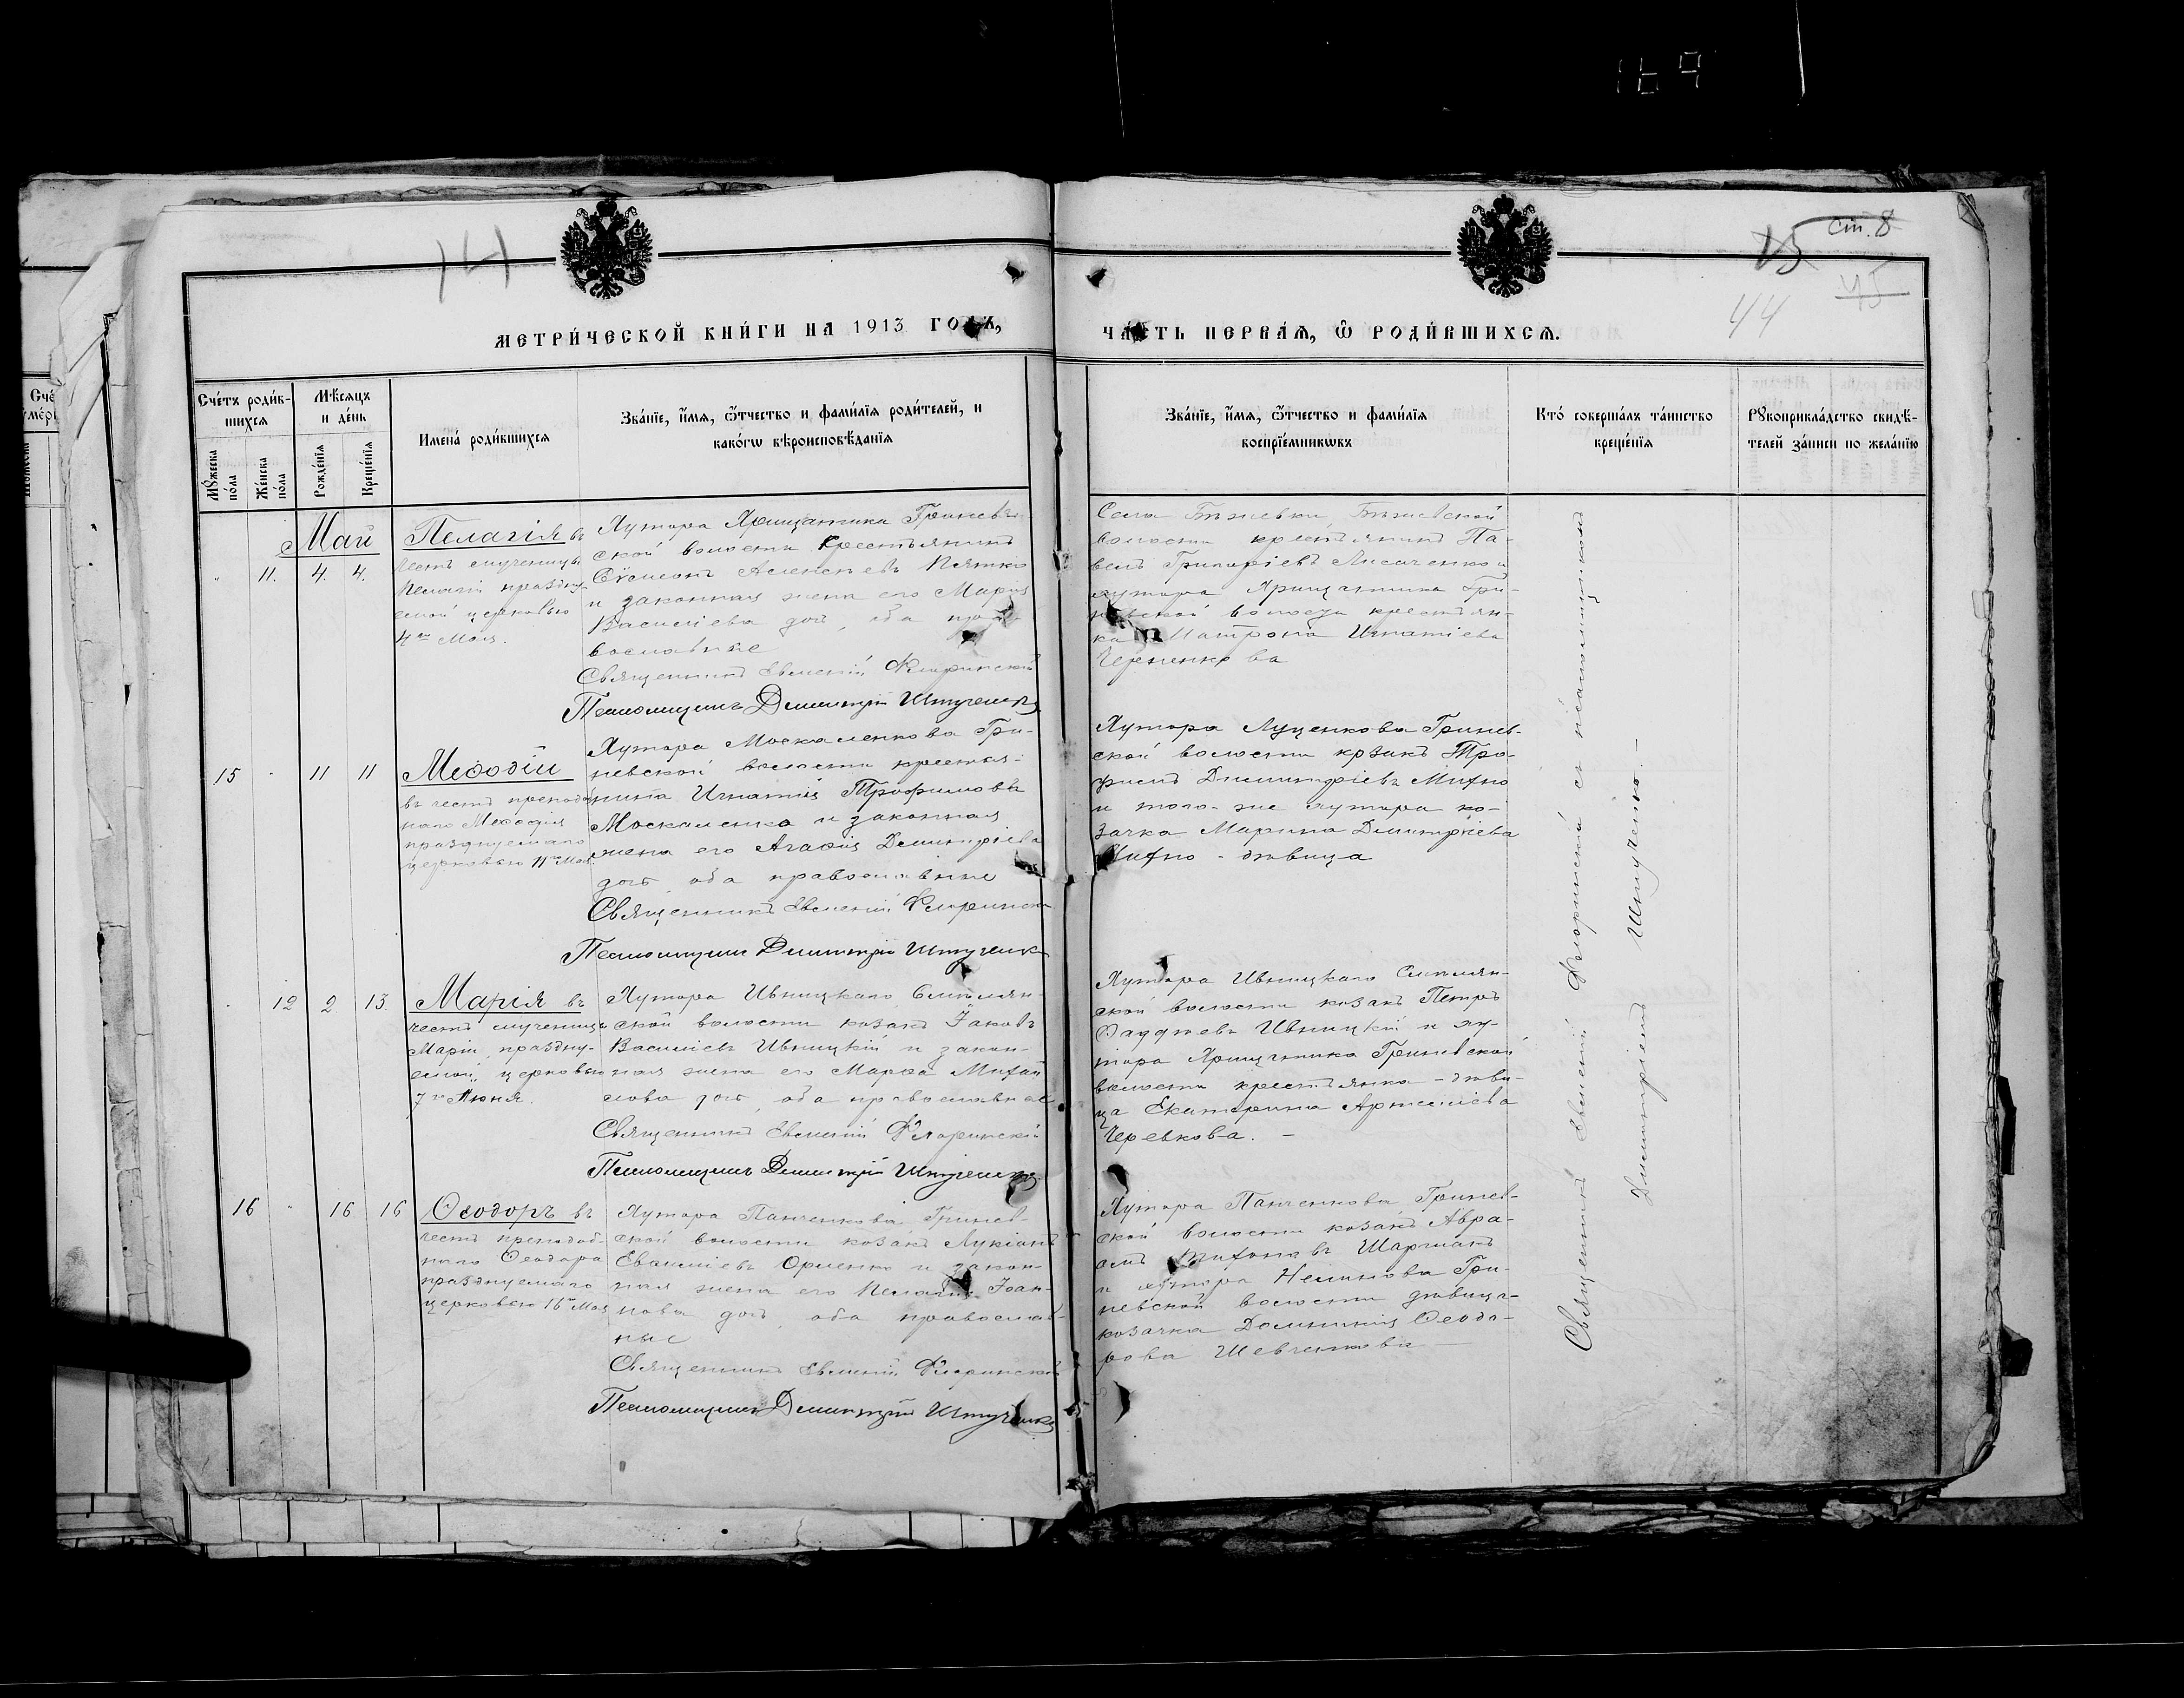 169
14
15
Стр. 8
44
45
МЕТРИ́ЧЕСКОЙ КНИ́ГИ НА 1913 ГОДЪ,
ЧА́СТЬ ПЕРВАѦ, Ѽ РОДИ́ВШИХСѦ.
Сче́тъ роди́в-
шихсѧ
Мꙋ́жеска по́ла
Же́нска по́ла
Мѣ́сѧцъ
и де́нь
Рожде́нїѧ
Креще́нїѧ
Имена̀ роди́вшихсѧ
Зва́нїе, и҆́мѧ, ѻ҆́тчество и фами́лїѧ роди́телей, и
како́гѡ вѣроисповѣ́данїѧ
Зва́нїе, и҆́мѧ, ѻ҆́тчество и фами́лїѧ
воспрїе́мникѡвъ
Кто́ соверша́лъ та́инство
креще́нїѧ
Рꙋкоприкла́дство свидѣ́-
телей за́писи по жела́нїю
Май
11. 4. 4.
Пелагія въ
честь мученицы
Пелагіи праздну-
емой церковью
4го Мая.
Хутора Хрищатика Гринев-
ской волости крестьянинъ
Сѵмеонъ Алексѣевъ Пятко
и законная жена его Марія
Василіева доч, оба пра-
вославные
Священникъ Евменій Флоринскій
Псаломщикъ Димитрій Штученко
Села Бѣжевки, Бѣжевской
волости крестьянинъ Па-
велъ Григоріевъ Лисаченко и
хутора Хрищатика Гри-
невской волости крестьян-
ка Матрона Игнатіева
Черненкова
15 11 11
Меѳодій
въ честь преподоб
наго Меѳодія
празднуемаго
церковью 11го Мая
Хутора Москаленкова Гри-
невской волости крестья-
нина Игнатія Трофимова
Москаленко и законная
жена его Агафія Димитріева
доч, оба православные
Священникъ Евменій Флоринскій
Псаломщикъ Димитрій Штученко
Хутора Луценкова Гринев-
ской волости козакъ Тро-
фимъ Димитріевъ Михно
и того-же хутора ко-
зачка Марина Димитріева
Михно - дѣвица
12 2. 13.
Марія въ
честь мученицы
Маріи, праздну-
емой церковью
7го Июня.
Хутора Ивницкаго Смѣлян-
ской волости козакъ Іаковъ
Василіевъ Ивницкій и закон-
ная жена его Марфа Михаи
лова доч, оба православные
Священникъ Евменій Флоринскій
Псаломщикъ Димитрій Штученко
Хутора Ивницкаго Смѣлян-
ской волости козакъ Петръ
Фаддѣевъ Ивницкій и ху-
тора Хрищатика Гриневской
волости крестьянка - дѣви-
ца Екатерина Артеміева
Черевкова. -
16 16 16
Ѳеодоръ въ
честь преподоб-
наго Ѳеодора
празднуемаго
церковью 16го Мая
Хутора Панченкова Гринев-
ской волости козакъ Лукіанъ
Евфиміевъ и закон-
ная жена его Пелагія Іоан-
нова доч, оба православ-
ные
Священникъ Евменій Флоринскій
Псаломщикъ Димитрій Штученко
Хутора Панченкова Гринев-
ской волости козакъ Авра-
амъ Шарпанъ
и хутора Гри-
невской волости дѣвица-
козачка Домникія Ѳеодо-
рова Шевченкова -
Священникъ Евменій Флоринскій съ псаломщикомъ
Димитріемъ Штученко -